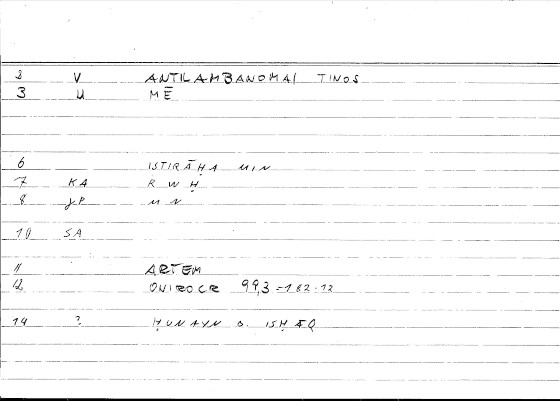 2 V ANTILAMBANOMAI TINOS
3 U MĒ
6 ISTIRĀḤA MIN
7 KA R W Ḥ
8 JP M N
10 SA
11 ARTEM
12 ONIROCR 99,3 = 182.12
14 ? ḤUNAYN B. ISḤĀQ